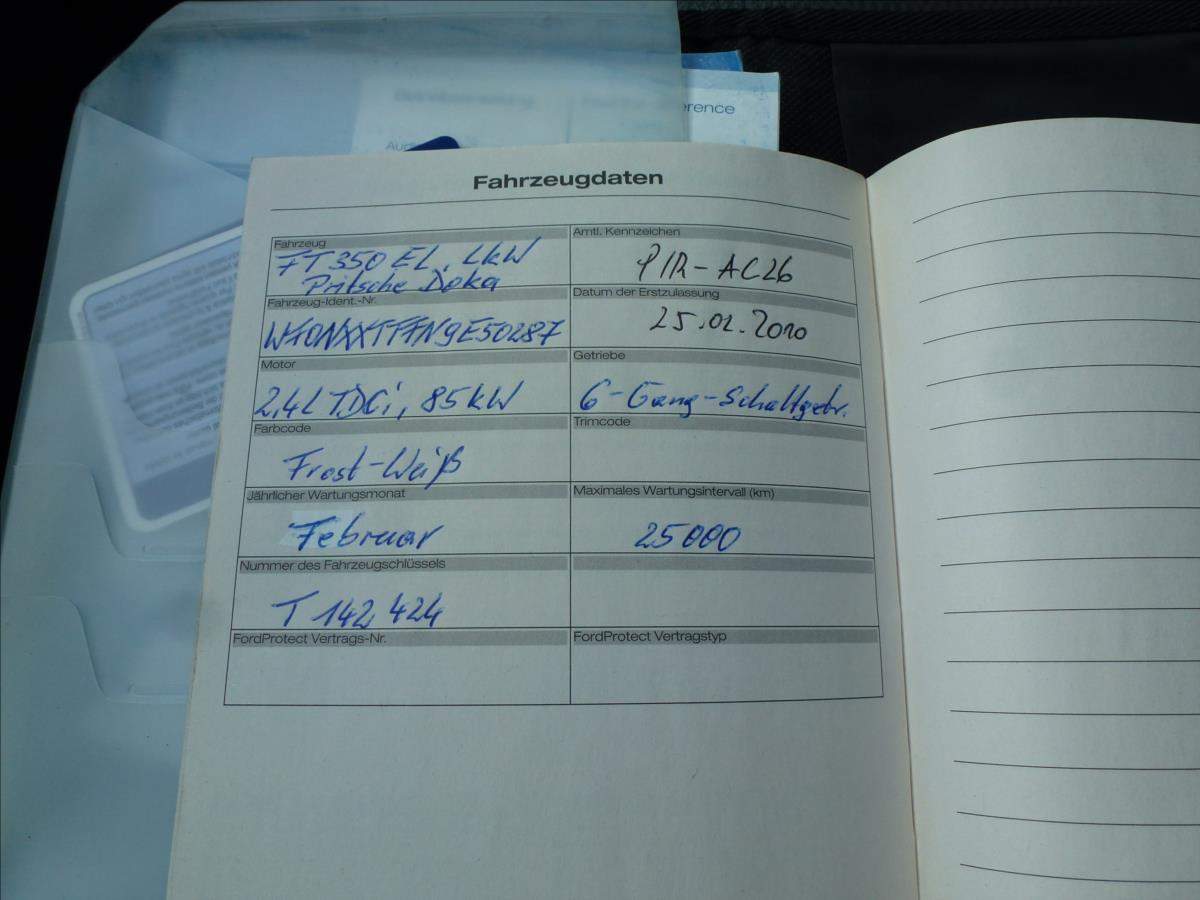 erence
Fahrzeugdaten
Fahrzeug
FT 350 EL, LkW
Pritsche Doka
Amtl. Kennzeichen
PIR-AC26
Fahrzeug-Ident.-Nr.
WF0NXXTTFN9E50287
Datum der Erstzulassung
25.02.2010
Motor
2,4L TDCi, 85 kW
Getriebe
6-Gang-Schaltgetr.
Farbcode
Frost-Weiß
Trimcode
Jährlicher Wartungsmonat
Februar
Maximales Wartungsintervall (km)
25 000
Nummer des Fahrzeugschlüssels
T 142 424
FordProtect Vertrags-Nr.
FordProtect Vertragstyp